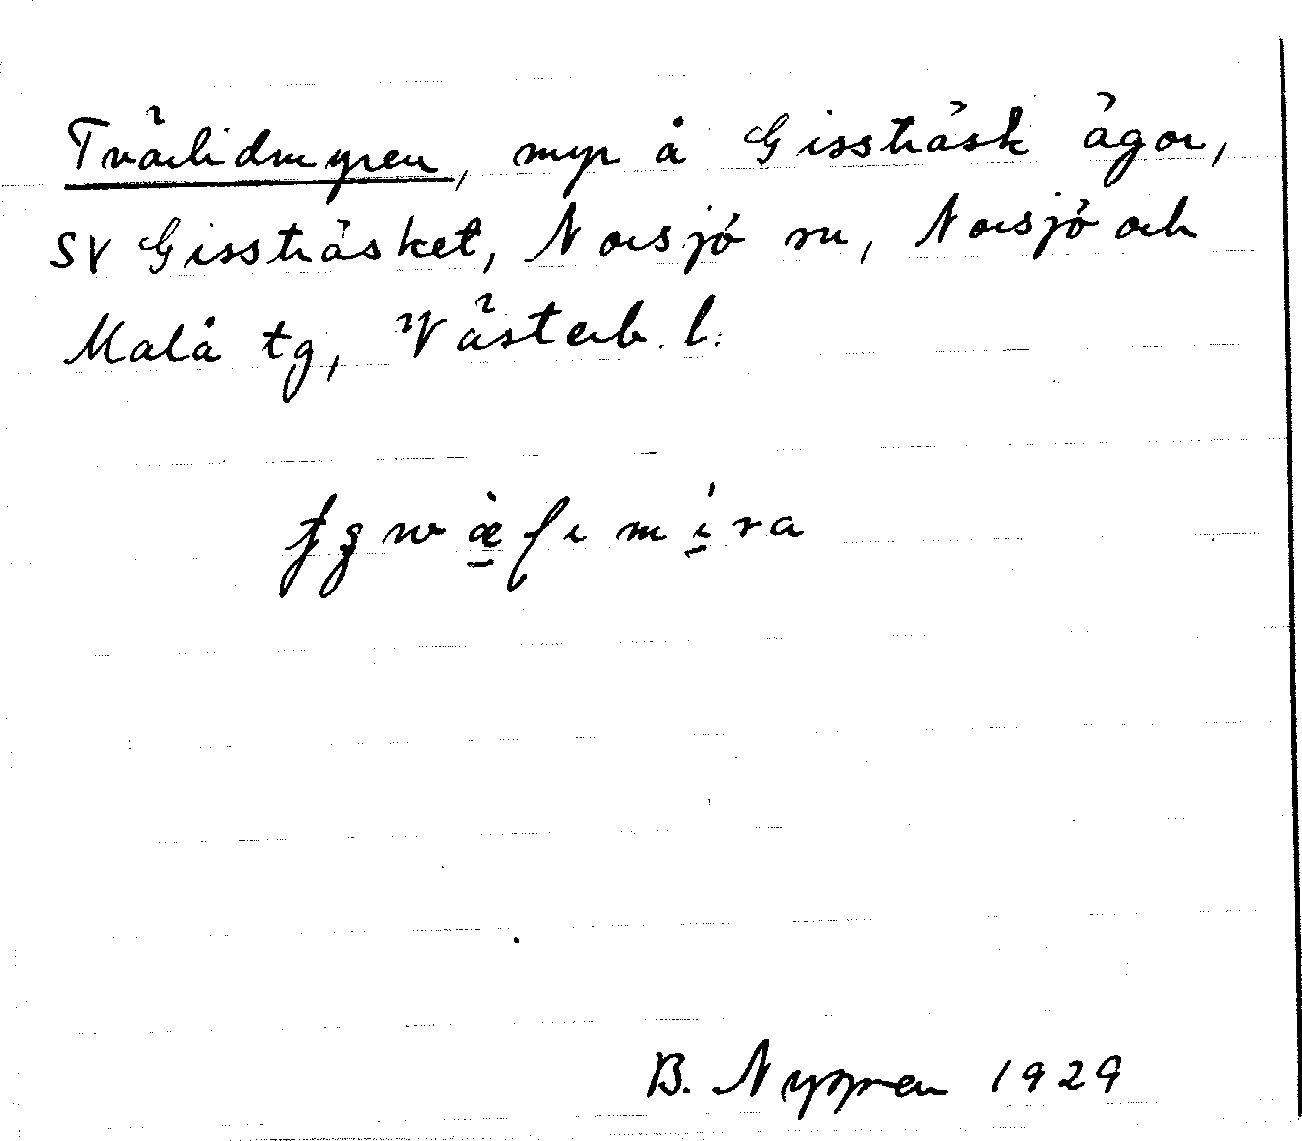 Tvärlidmyren, myr å Gissträsk ägor,
SV Gissträsket, Norsjö sn, Norsjö och
Malå tg, Västerb. l.
B. Nygren 1929